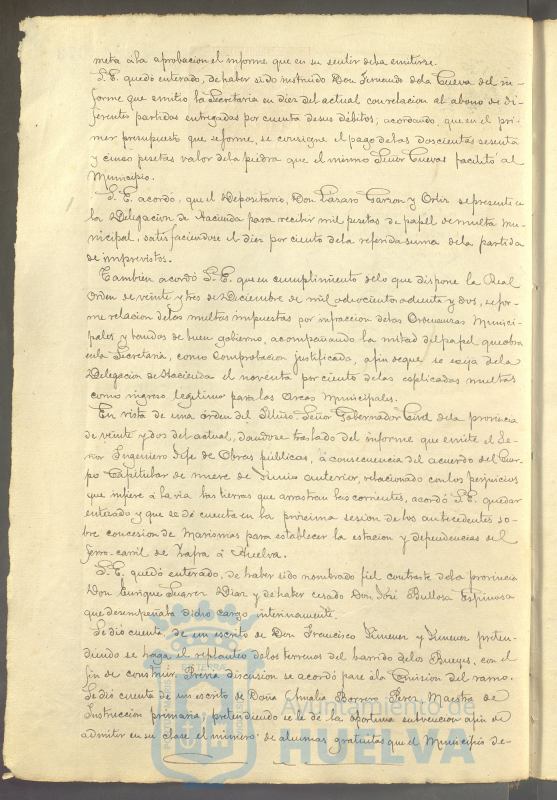 meta á la aprobacion el informe que en su sentir deba emitirse.
S. E. quedó enterado, de haber sido instruido Don Fernando de la Cueva del in-
forme que emitió la Secretaria en diez del actual con relacion al abono de di-
ferentes partidas entregadas por cuenta de sus débitos, acordando, que en el pri-
mer presupuesto que se forme, se consigne el pago de las doscientas sesenta
y cinco pesetas valor de la piedra que el mismo Señor Cuevas facilitó al
Municipio.
S. E. acordó, que el Depositario, Don Lázaro Garzon y Ortiz se presente en
la Delegacion de Hacienda para recibir mil pesetas de papel de multa mu-
nicipal, satisfaciendose el diez por ciento de la referida suma de la partida
de imprevistos.
Tambien acordó S. E. que en cumplimiento de lo que dispone la Real
Orden de veinte y tres de Diciembre de mil ochociento ochenta y dos, se for-
me relacion de las multas impuestas por infraccion de las Ordenanzas Munici-
pales y bandos de buen gobierno, acompañando la mitad del papel que obra
en la Secretaria, como Comprobacion justificada, a fin de que se exija de la
Delegacion de Hacienda el noventa por ciento de las esplicadas multas
como ingreso legítimo para las Arcas Municipales.
En vista de una órden del Iltmo. Señor Gobernador Civil de la provincia
de veinte y dos del actual, dandose traslado del informe que emite el Se-
ñor Ingeniero Jefe de Obras públicas, á consecuencia del acuerdo del Cuer-
po Capitular de nueve de Junio anterior, relacionado con los perjuicios
que infiere á la via las tierras que arrastran las corrientes, acordó S. E. quedar
enterado y que se dé cuenta en la próxima sesion de los antecedentes so-
bre concesion de Marismas para establecer la estacion y dependencias del
ferro-carril de Zafra á Huelva.
S. E. quedó enterado, de haber sido nombrado fiel contraste de la provincia
Don Enrique Suarez Diaz y de haber cesado Don José Bullosa Espinosa
que desempeñaba dicho cargo interinamente.
Se dió cuenta de un escrito de Don Francisco Jimenez y Jimenez preten-
diendo se haga el replanteo de los terrenos del barrido de los Bueyes, con el
fin de construir. Previa discusion se acordó pase á la Comision del ramo.
Se dió cuenta de un escrito de Doña Amalia Borrero Perez, Maestra de
Instruccion primaria, pretendiendo se le dé la oportuna subvencion a fin de
admitir en su clase el número de alumnas gratuitas que el Municipio de-
Ayuntamiento de
HUELVA